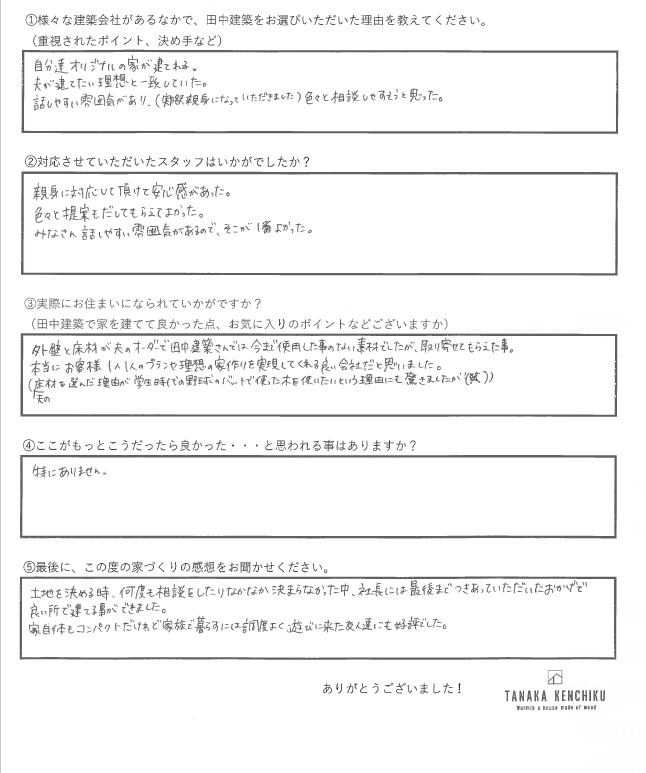 ①様々な建築会社があるなかで、田中建築をお選びいただいた理由を教えてください。
（重視されたポイント、決め手など）
自分達オリジナルの家が建てれる。
夫が建てたい理想と一致していた。
話しやすい雰囲気があり、(実際親身になっていただきました) 色々と相談しやすそうと思った。
②対応させていただいたスタッフはいかがでしたか？
親身に対応して頂けて安心感があった。
色々と提案もだしてもらえてよかった。
みなさん話しやすい雰囲気があるので、そこが1番よかった。
③実際にお住まいになられていかがですか？
（田中建築で家を建てて良かった点、お気に入りのポイントなどございますか）
外壁と床材が夫のオーダーで田中建築さんでは今まで使用した事のない素材でしたが、取り寄せてもらえた事。
本当にお客様1人1人のプランや理想の家作りを実現してくれる良い会社だと思いました。
(床材を選んだ理由が学生時代の野球のバットで使った木を使いたいという理由にも驚きましたが(笑))
夫の
④ここがもっとこうだったら良かった・・・と思われる事はありますか？
特にありません。
⑤最後に、この度の家づくりの感想をお聞かせください。
土地を決める時、何度も相談をしたりなかなか決まらなかった中、社長には最後までつきあっていただいたおかげで
良い所で建てる事ができました。
家自体もコンパクトだけれど家族で暮らすには調度よく遊びに来た友人達にも好評でした。
ありがとうございました！
TANAKA KENCHIKU
Warmth a house made of wood